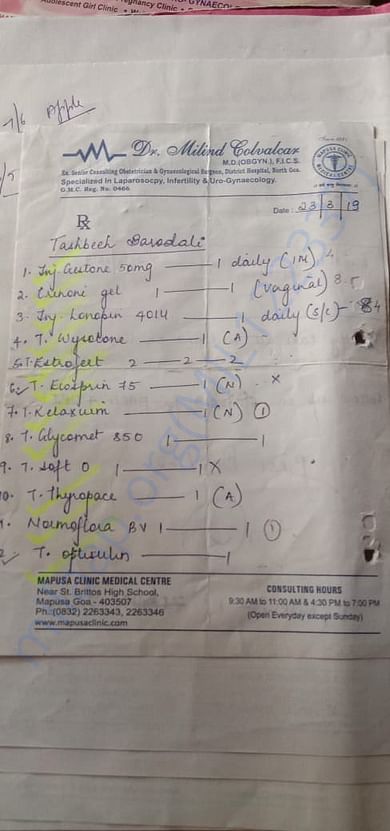 Adolescent Girl Clinic • 
7/6 Apple
Dr. Milind Colvalcar
M.D.(OBGYN.), F.I.C.S.
Ex. Senior Consulting Obstetrician & Gynaecological Surgeon, District Hospital, North Goa.
Specialized in Laparosocpy, Infertility & Uro-Gynaecology.
G.M.C. Reg. No. 0466
Date : 23/3/19
Rx
1. Inj. 50mg — 1 daily (IM)
2. Crinone gel 1 — 1 (Vaginal)
3. Inj. Lonopin — 1 daily (s/c)
4. T. Wysolone — 1 (A)
5. T. Estrofert 2 — 2 — 2
6. T. Ecosprin 75 — 1 (N) x
7. T. — 1 (N) 1
8. T. Glycomet 850 1 — 1
9. T. Soft 0 1 — 1 x
10. T. Thyropace — 1 (A)
Normoflora BV 1 — 1 1
T. — 1
MAPUSA CLINIC MEDICAL CENTRE
Near St. Brittos High School,
Mapusa Goa - 403507
Ph.:(0832) 2263343, 2263346
www.mapusaclinic.com
CONSULTING HOURS
9:30 AM to 11:00 AM & 4:30 PM to 7:00 PM
(Open Everyday except Sunday)